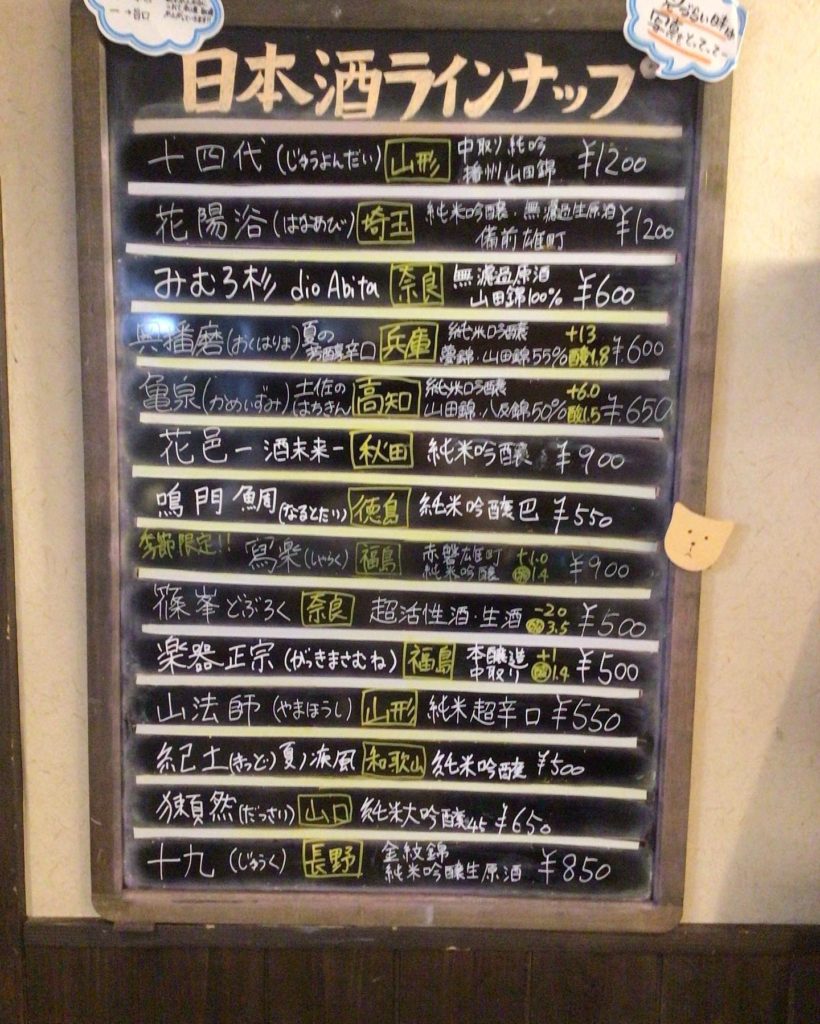 一→旨口
写真をとってって〜
日本酒ラインナップ
十四代(じゅうよんだい) 山形 中取り純吟 播州山田錦 ¥1200
花陽浴(はなあび) 埼玉 純米吟醸・無濾過生原酒 備前雄町 ¥1200
みむろ杉 dio Abita 奈良 無濾過原酒 山田錦100% ¥600
奥播磨(おくはりま) 夏の芳醇辛口 兵庫 純米吟醸 夢錦・山田錦55% +13 酸1.8 ¥600
亀泉(かめいずみ) 土佐のはちきん 高知 純米吟醸 山田錦・八反錦50% +6.0 酸1.5 ¥650
花邑ー酒未来ー 秋田 純米吟醸 ¥900
鳴門鯛(なるとたい) 徳島 純米吟醸 巴 ¥550
季節限定!! 寫楽(しゃらく) 福島 赤磐雄町 純米吟醸 +1.0 酸1.4 ¥900
篠峯どぶろく 奈良 超活性酒・生酒 -20 酸3.5 ¥500
楽器正宗(がっきまさむね) 福島 本醸造 中取り +1 酸1.4 ¥500
山法師(やまほうし) 山形 純米超辛口 ¥550
紀土(きっど)夏ノ疾風 和歌山 純米吟醸 ¥500
獺然(だっさい) 山口 純米大吟醸45 ¥650
十九(じゅうく) 長野 金紋錦 純米吟醸生原酒 ¥850